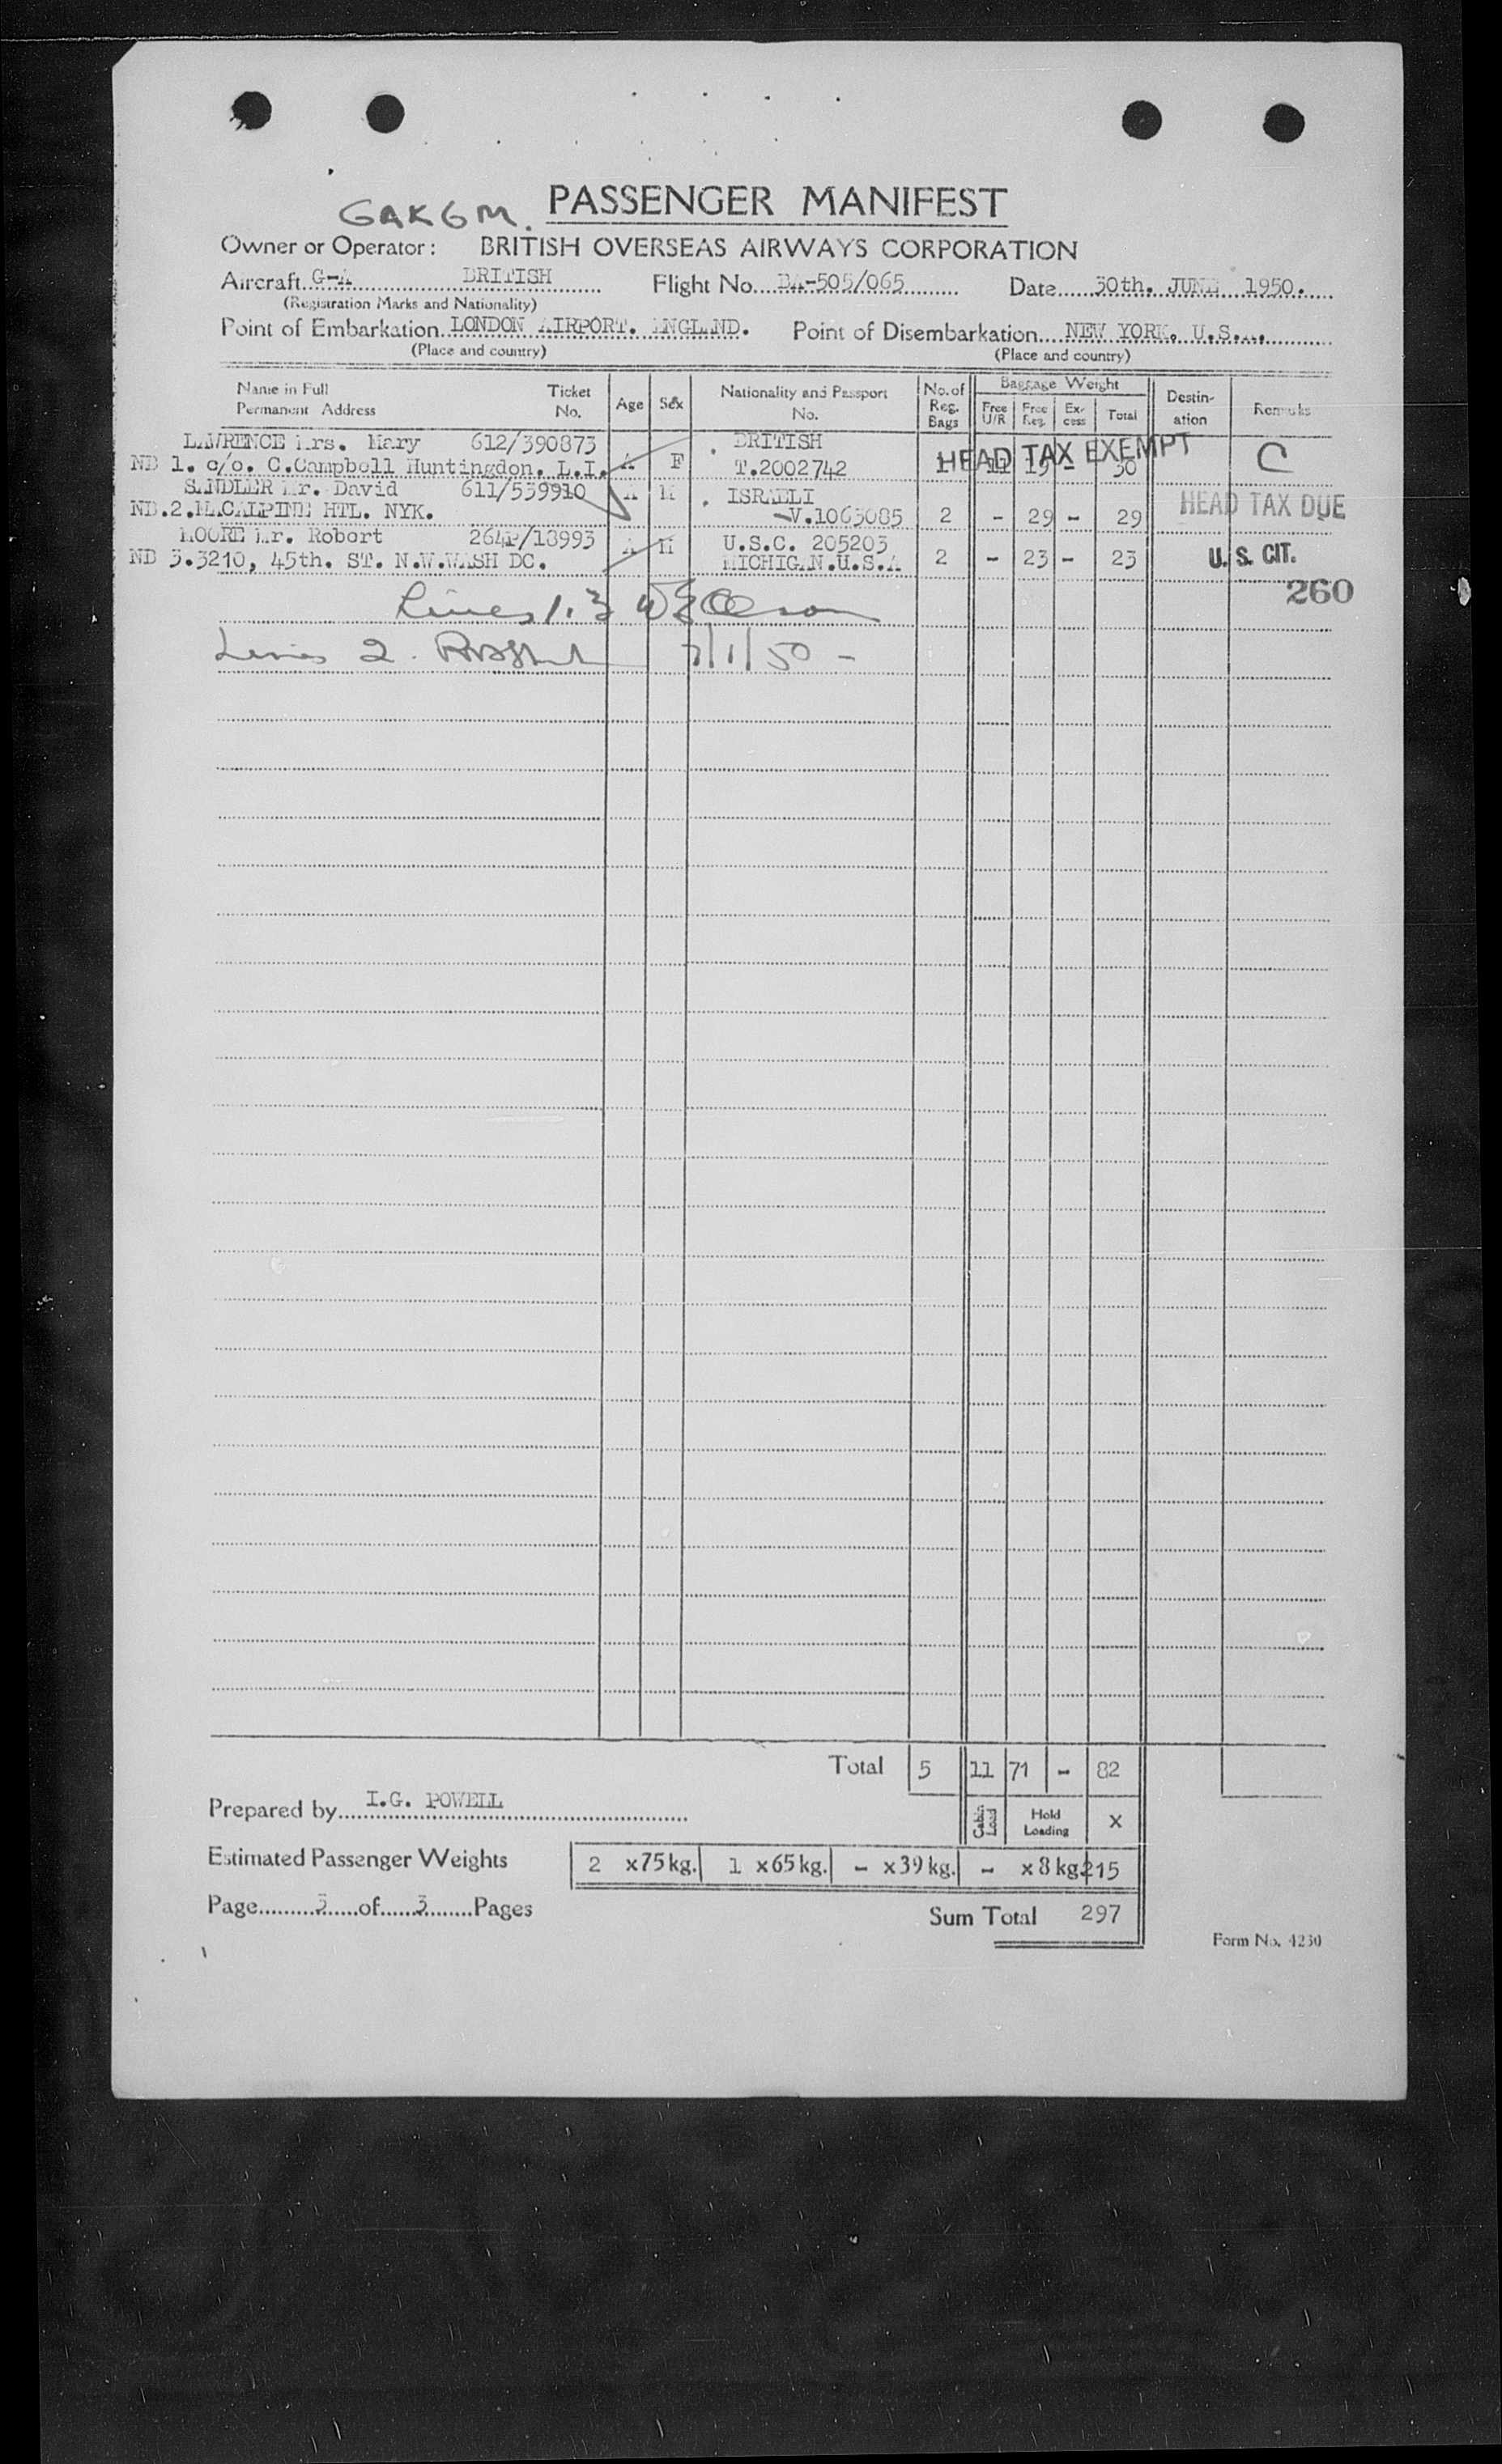 GAKGM. PASSENGER MANIFEST
Owner or Operator: BRITISH OVERSEAS AIRWAYS CORPORATION
Aircraft G-A BRITISH Flight No. BA-505/065 Date 30th. JUNE 1950.
(Registration Marks and Nationality)
Point of Embarkation LONDON AIRPORT. ENGLAND. Point of Disembarkation NEW YORK. U.S.A.
(Place and country) (Place and country)
Name in Full Permanent Address Ticket No. Age Sex Nationality and Passport No. No. of Reg. Bags Baggage Weight Free U/R Free Reg. Excess Total Destination Remarks
LAWRENCE Mrs. Mary 612/390873 BRITISH
ND 1. c/o. C.Campbell Huntingdon. L.I. A F T.2002742 1 11 19 - 30 HEAD TAX EXEMPT C
SANDLER Mr. David 611/539910 A M ISRAELI HEAD TAX DUE
ND.2.McALPINE HTL. NYK. V.1063085 2 - 29 - 29
MOORE Mr. Robert 264P/18993 A M U.S.C. 205203
ND 3.3210, 45th. ST. N.W.WASH DC. MICHIGAN.U.S.A 2 - 23 - 23 U. S. CIT.
260
Lines 1.3
Lines 2. 7/1/50 -
Total 5 11 71 - 82
Prepared by I.G. POWELL Cabin Load Hold Loading X
Estimated Passenger Weights 2 x75kg. 1 x65kg. - x39kg. - x8kg. 215
Page 3 of 3 Pages Sum Total 297
Form No. 4230